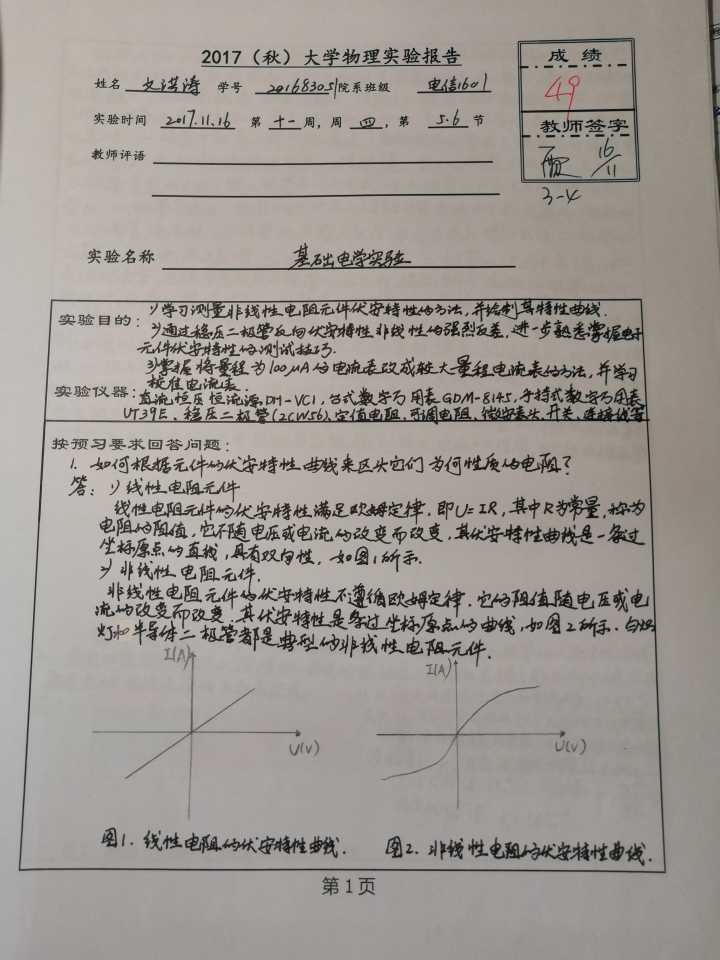 2017（秋）大学物理实验报告
成 绩
49
姓名 文洪涛 学号 20168305 院系班级 电信1601
实验时间 2017.11.16 第 十一 周，周 四 ，第 5.6 节
教师签字
16/11
3-4
教师评语
实验名称 基础电学实验
实验目的：1) 学习测量非线性电阻元件伏安特性的方法，并绘制其特性曲线．
2) 通过稳压二极管反向伏安特性非线性的强烈反差，进一步熟悉掌握电子
元件伏安特性的测试技巧．
3) 掌握将量程为100μA的电流表改成较大量程电流表的方法，并学习
校准电流表．
实验仪器：直流恒压恒流源DH-VC1，台式数字万用表GDM-8145，手持式数字万用表
UT39E，稳压二极管(2CW56)，定值电阻，可调电阻，微安表头，开关，连接线等
按预习要求回答问题：
1. 如何根据元件的伏安特性曲线来区分它们为何性质的电阻？
答：1) 线性电阻元件
线性电阻元件的伏安特性满足欧姆定律，即U=IR，其中R为常量，称为
电阻的阻值，它不随电压或电流的改变而改变，其伏安特性曲线是一条过
坐标原点的直线，具有双向性，如图1所示．
2) 非线性电阻元件．
非线性电阻元件的伏安特性不遵循欧姆定律．它的阻值随电压或电
流的改变而改变．其伏安特性是条过坐标原点的曲线，如图2所示．白炽
灯和半导体二极管都是典型的非线性电阻元件．
I(A) I(A)
U(V) U(V)
图1. 线性电阻的伏安特性曲线． 图2. 非线性电阻的伏安特性曲线．
第1页